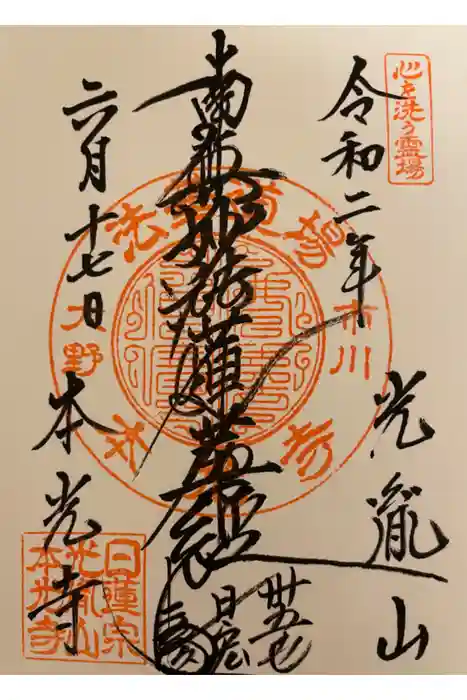 心を洗う霊場
令和二年
光胤山
南無妙法蓮華経
六月十七日
本光寺
市川
大野
日蓮宗
光胤山
本光寺